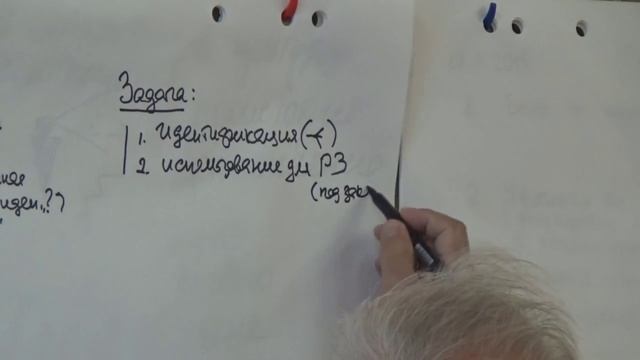 Задача:
1. идентификация (
2. использование для РЗ
(под
ная
иден.."?)